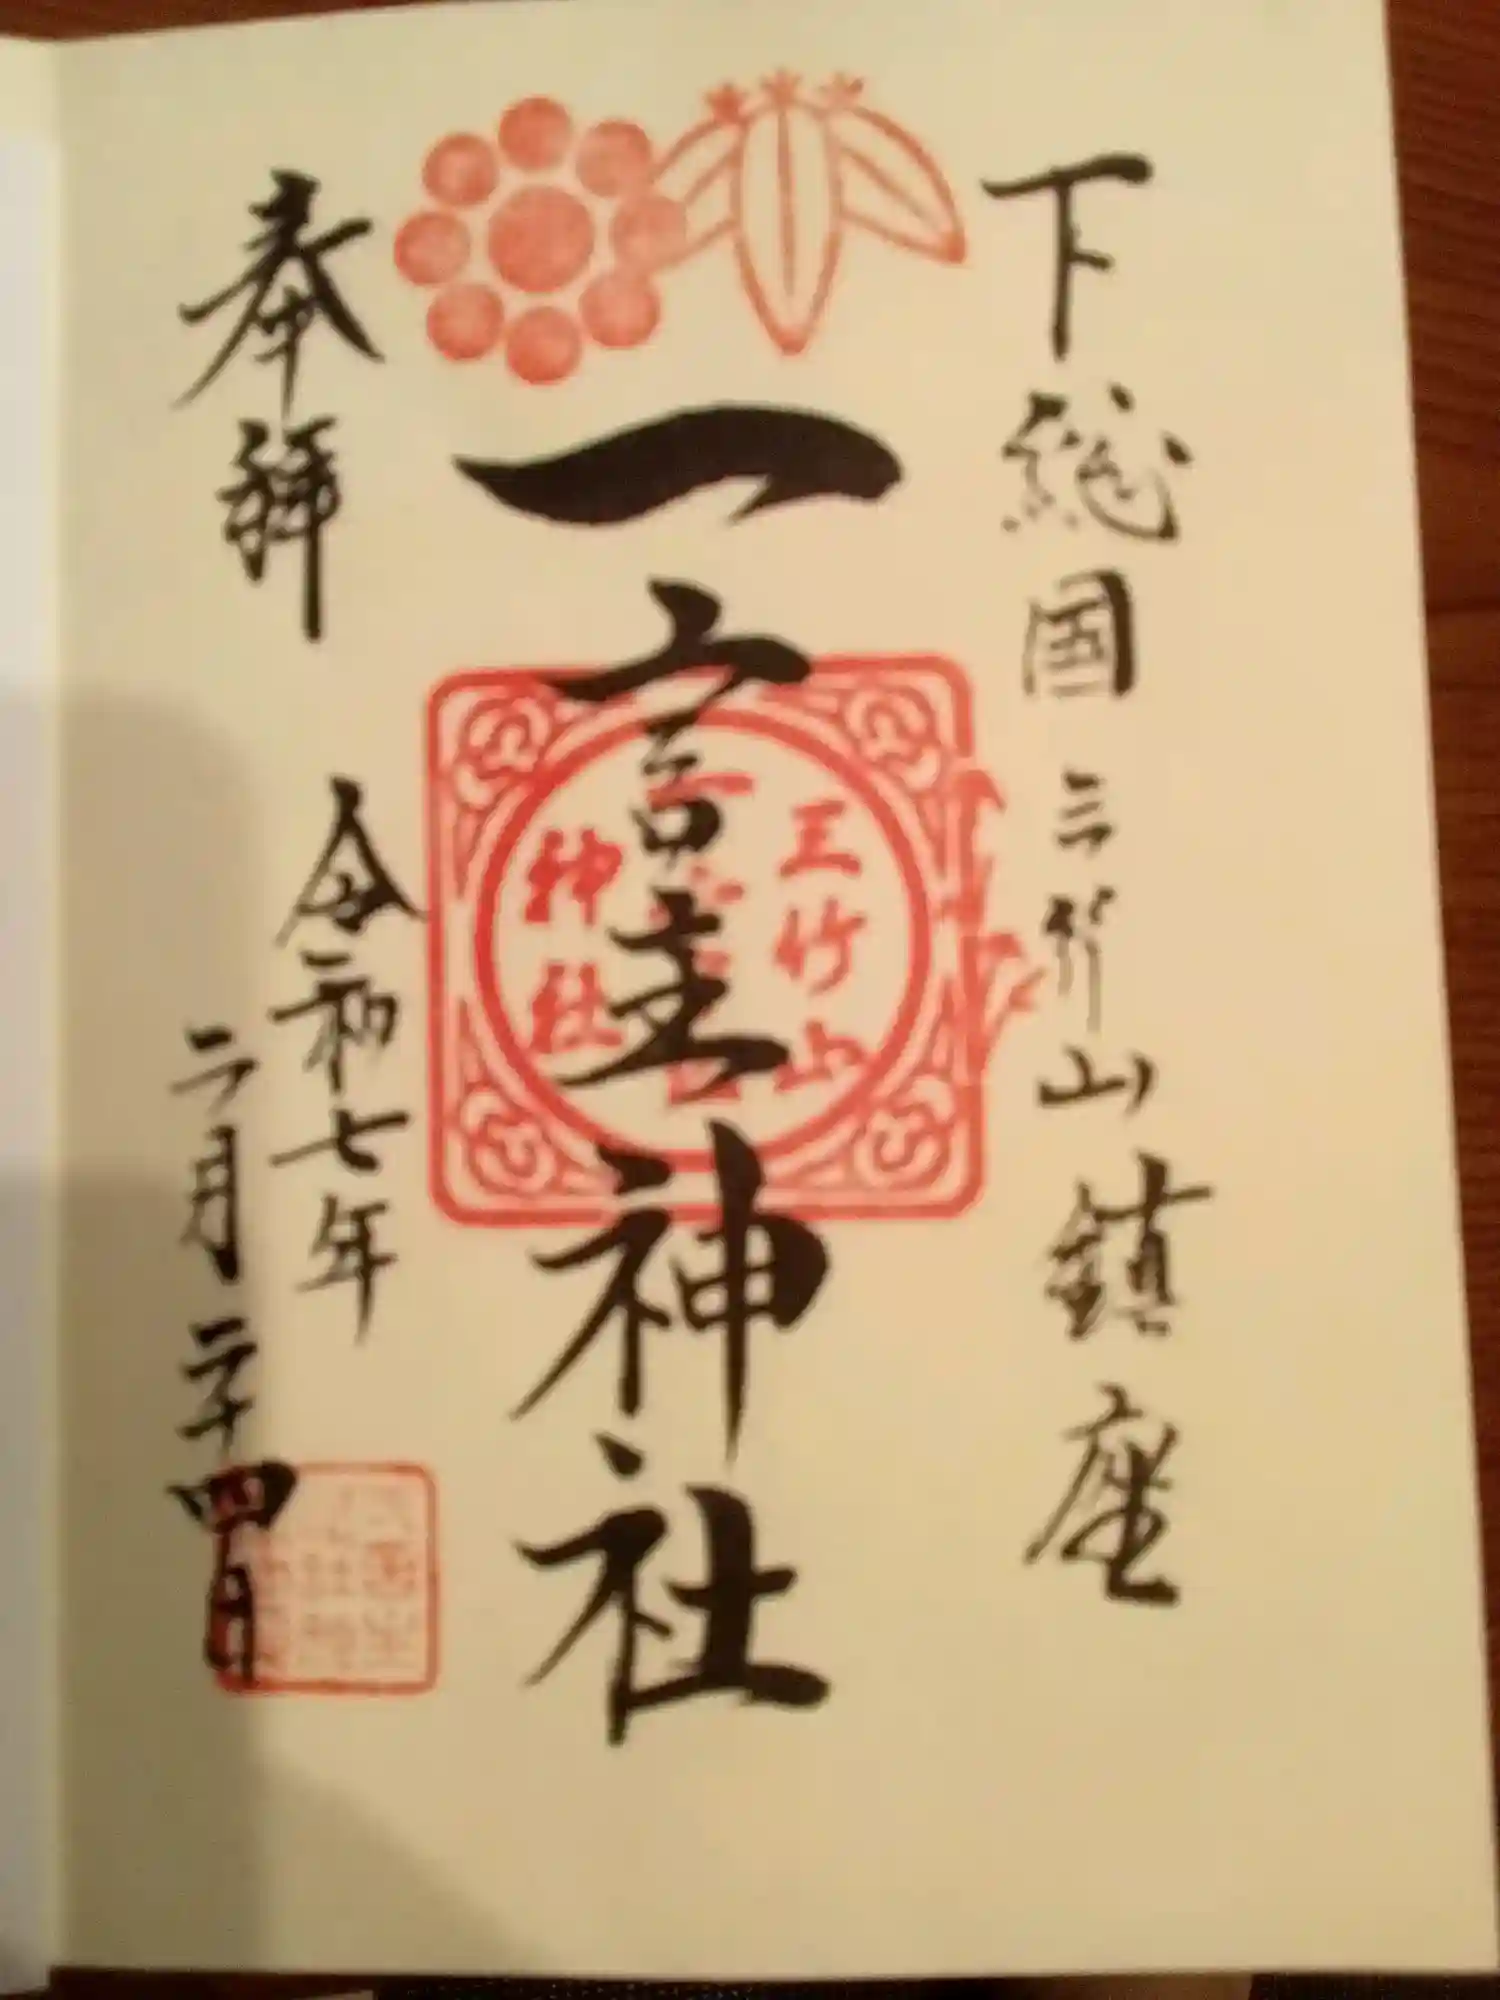 下総国三竹山鎮座
一言主神社
三竹山
神社
奉拝
令和七年
二月二十四日